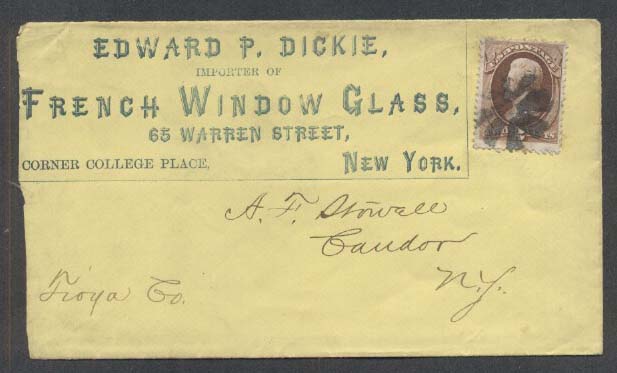 EDWARD P. DICKIE,
IMPORTER OF
FRENCH WINDOW GLASS,
65 WARREN STREET,
CORNER COLLEGE PLACE, NEW YORK.
A. F. Stowell
Candor
N.Y.
Tioga Co.